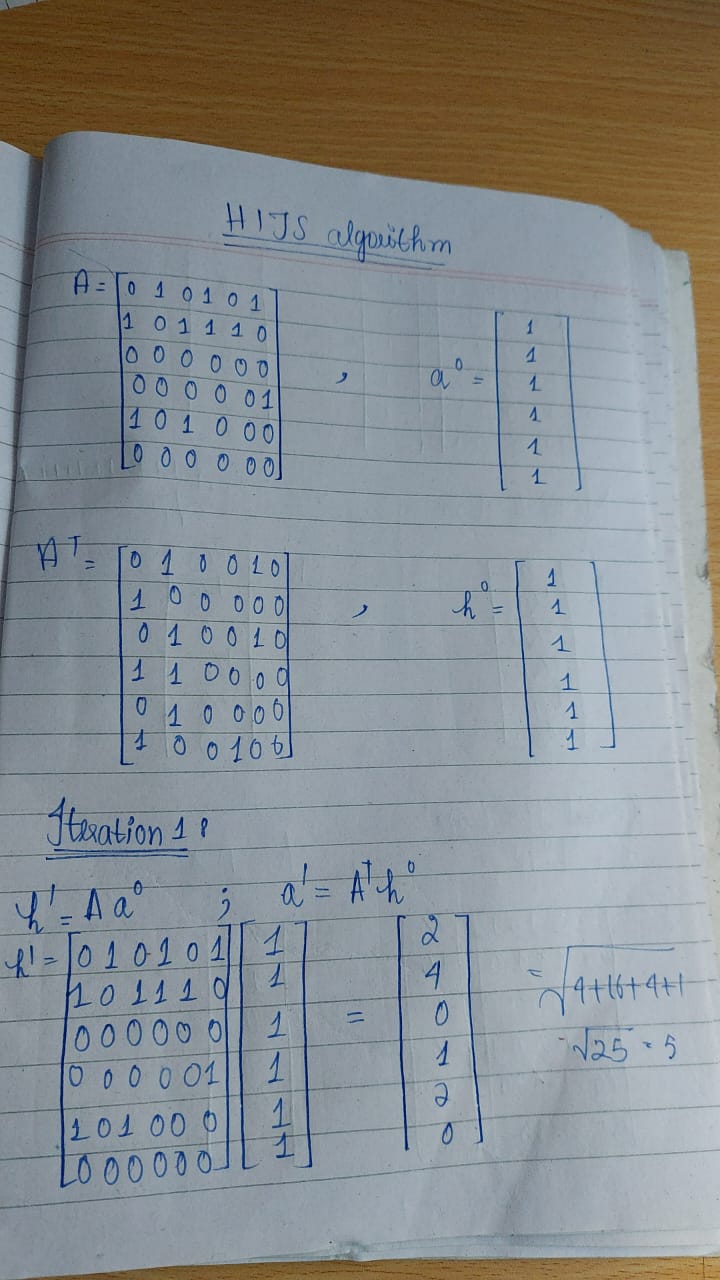 HITS algorithm
A = [0 1 0 1 0 1
1 0 1 1 1 0
0 0 0 0 0 0
0 0 0 0 0 1
1 0 1 0 0 0
0 0 0 0 0 0] , a⁰ = [1
1
1
1
1
1]
Aᵀ = [0 1 0 0 1 0
1 0 0 0 0 0
0 1 0 0 1 0
1 1 0 0 0 0
0 1 0 0 0 0
1 0 0 1 0 0] , h⁰ = [1
1
1
1
1
1]
Iteration 1 :
h' = A a⁰ ; a' = Aᵀ h⁰
h' = [0 1 0 1 0 1] [1] = [2] = √4+16+4+1
1 0 1 1 1 0 1 4 √25 = 5
0 0 0 0 0 0 1 0
0 0 0 0 0 1 1 1
1 0 1 0 0 0 1 2
0 0 0 0 0 0 1 0